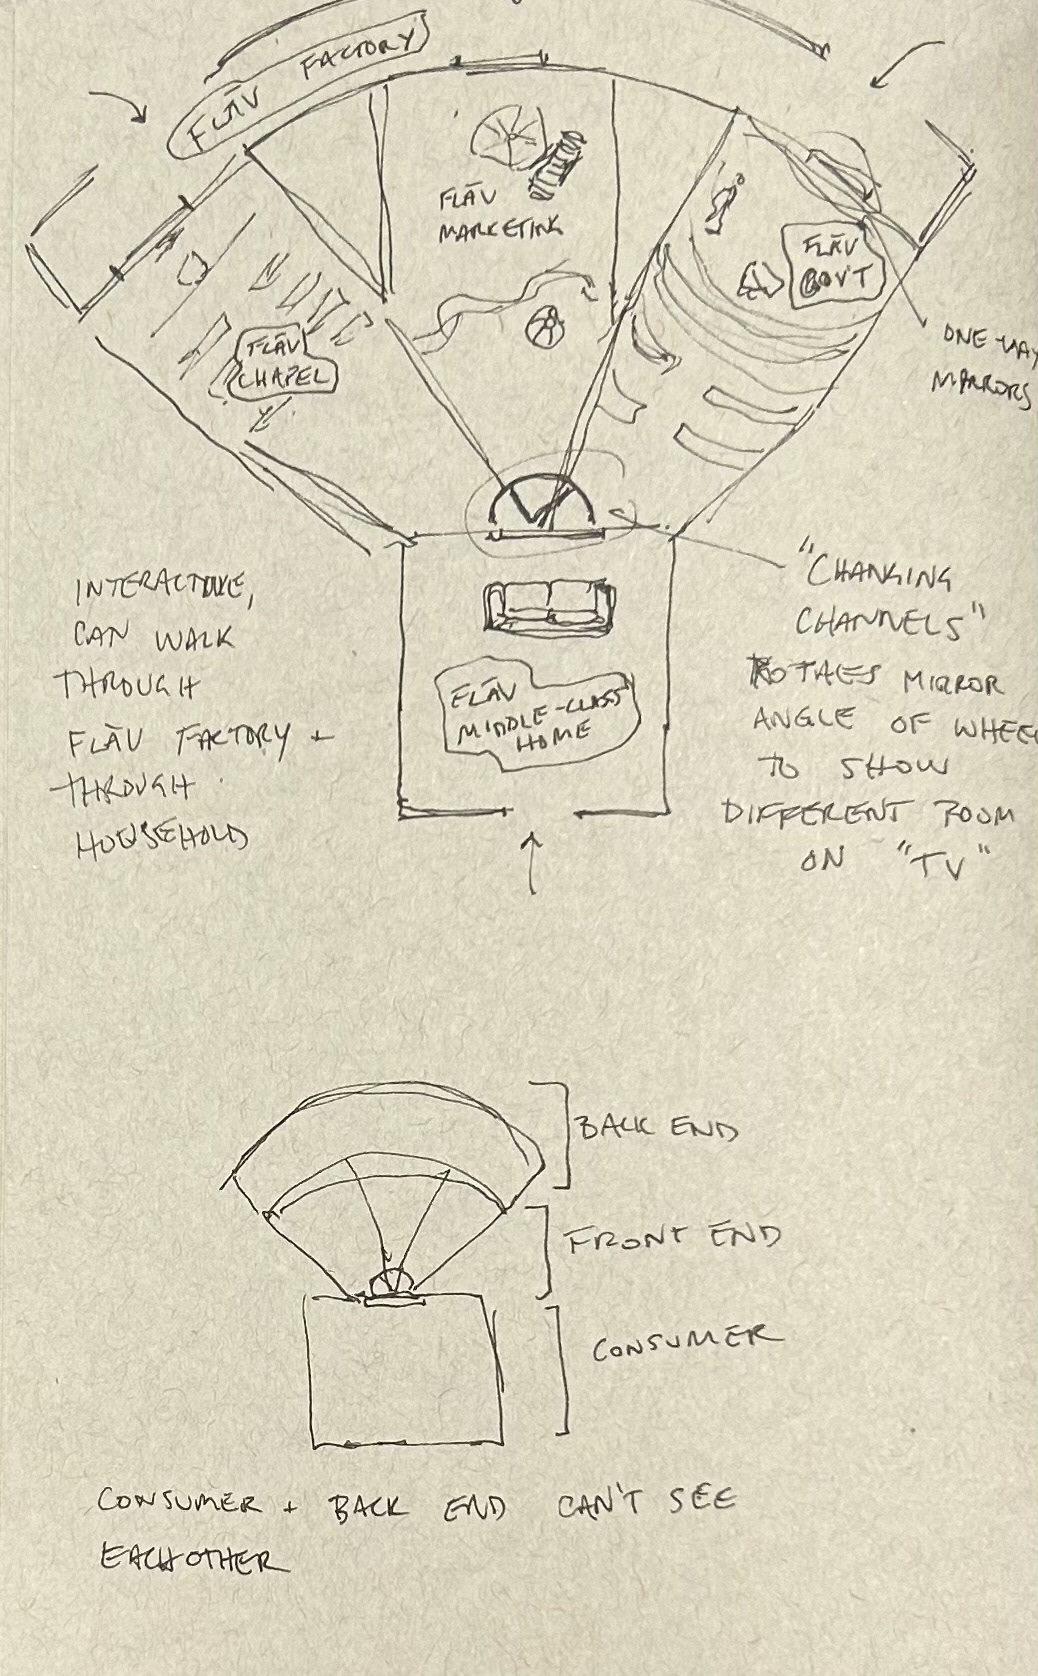 FLĀV FACTORY
FLĀV
MARKETING
FLĀV
GOV'T
FLĀV
CHAPEL
ONE-WAY
MIRRORS
INTERACTIVE,
CAN WALK
THROUGH
FLĀV FACTORY +
THROUGH
HOUSEHOLD
FLĀV
MIDDLE-CLASS
HOME
"CHANGING
CHANNELS"
ROTATES MIRROR
ANGLE OF WHEEL
TO SHOW
DIFFERENT ROOM
ON "TV"
BACK END
FRONT END
CONSUMER
CONSUMER + BACK END CAN'T SEE
EACH OTHER